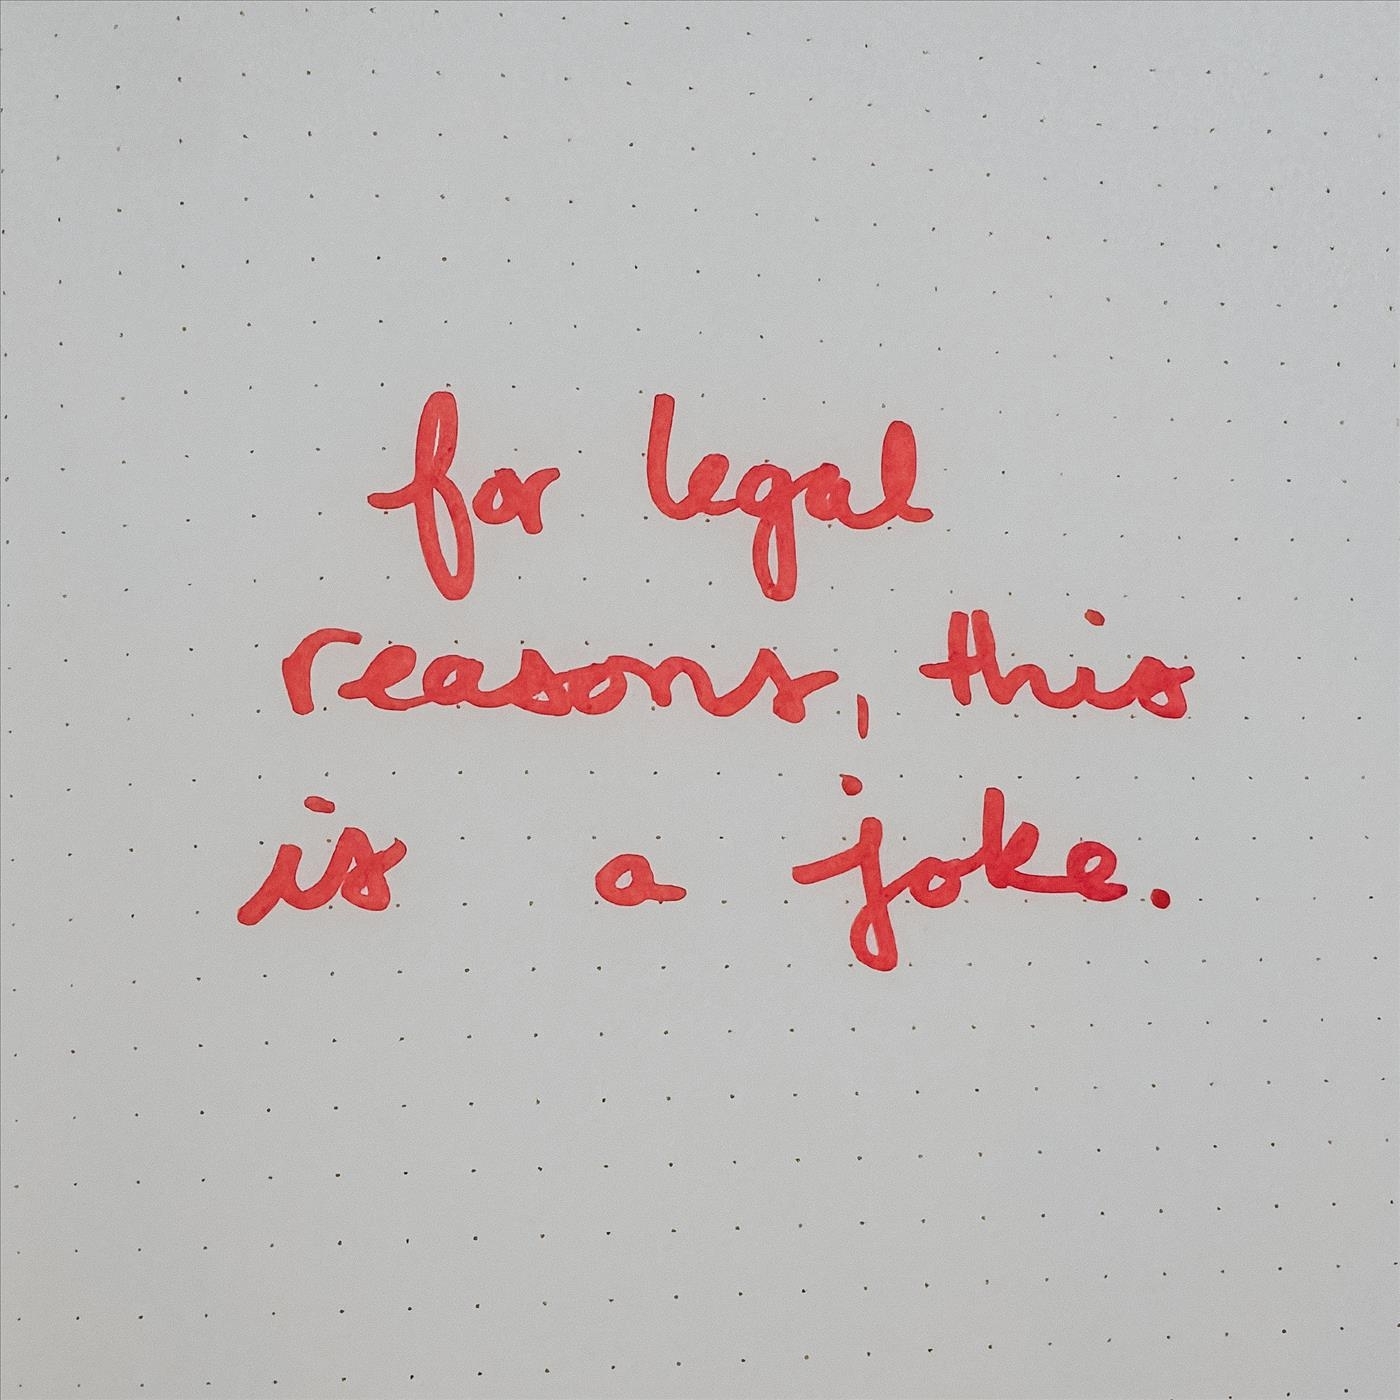 for legal
reasons, this
is a joke.